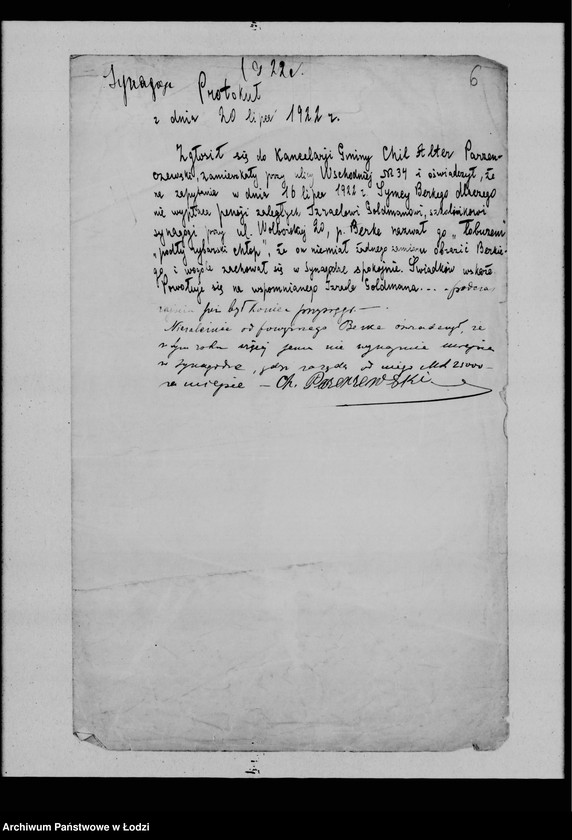 1922 r.
6
Synagoga
Protokuł
z dnia 20 lipca 1922 r.
Zgłosił się do Kancelarji Gminy Chil Alter Parzen-
czewski, zamieszkały przy ulicy Wschodniej № 34 i oświadczył, że
na zapytanie w dniu 16 lipca 1922 r. Symey Berkego dlaczego
nie wypłaca pensji zaległych Izraelowi Goldmanowi, szkolnikowi
synagogi przy ul. Wolborskiej 20, p. Berke nazwał go „Łobuzem"
„podły rybacki chłop", że on niemiał żadnego zamiaru obrazić Berke-
go, i wogóle zachował się w Synagodze spokojnie. Świadków wskaże.
Powołuje się na wspomnianego Izraela Goldmana... podczas
już był koniec
Niezależnie od powyższego Berke oświadczył, że
w tym roku jemu nie wynajmie miejsca
w Synagodze, gdyż od niego Mk 25000-
za miejsce — Ch. Parzenczewski
Archiwum Państwowe w Łodzi